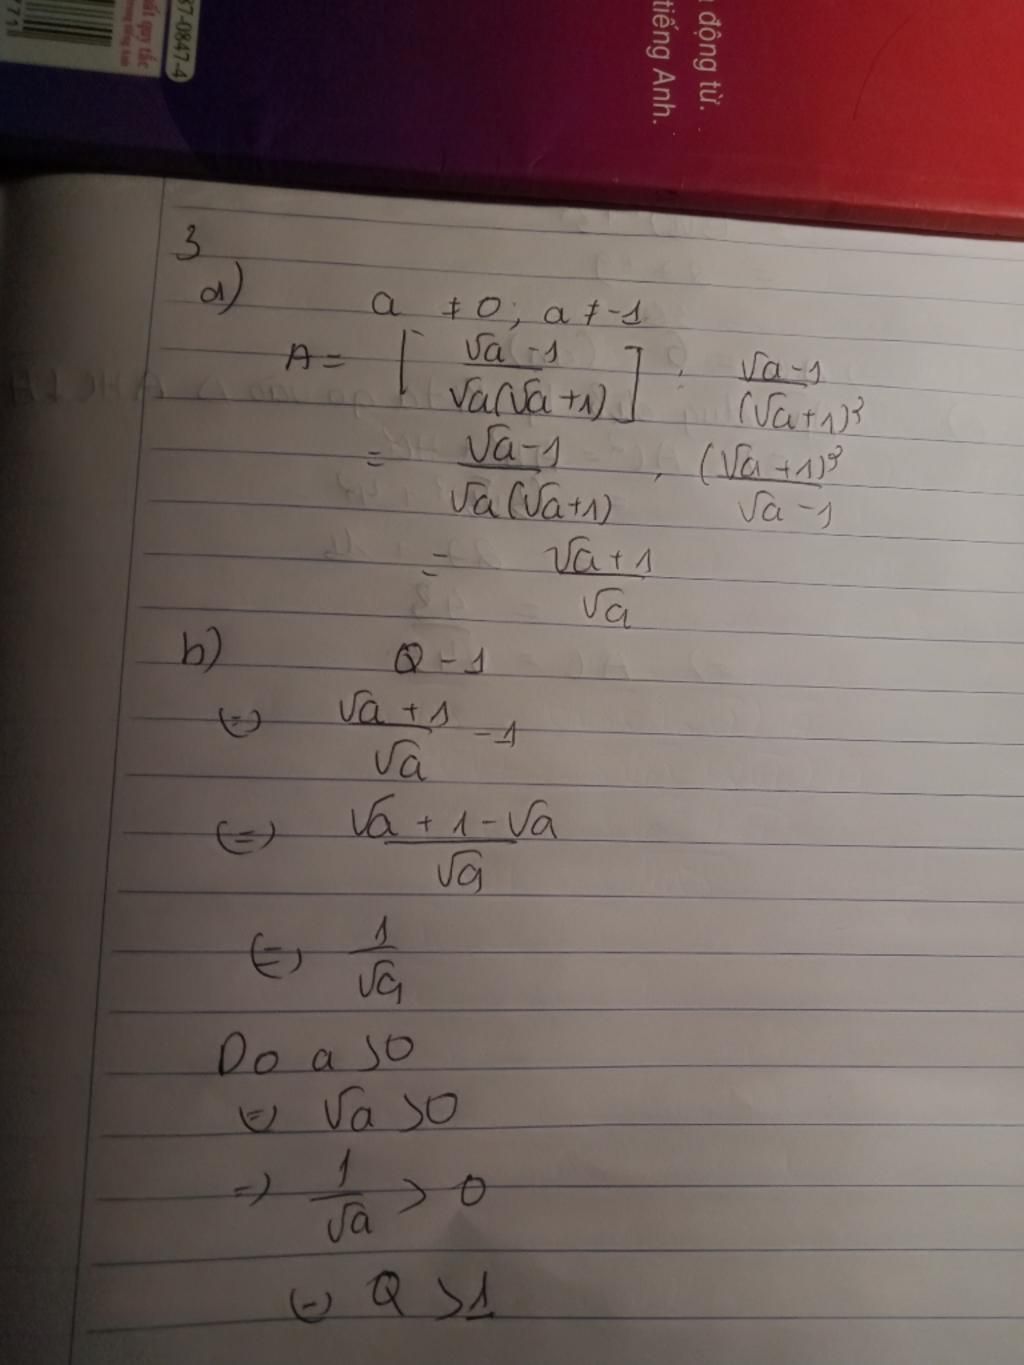 động từ.
tiếng Anh.
87-0847-4
3
a) a ≠ 0; a ≠ -1
A = [ √a - 1 / √a(√a + 1) ] : √a - 1 / (√a + 1)²
= √a - 1 / √a(√a + 1) . (√a + 1)² / √a - 1
= √a + 1 / √a
b) Q - 1
(=) √a + 1 / √a - 1
(=) √a + 1 - √a / √a
(=) 1 / √a
Do a > 0
(=) √a > 0
=) 1 / √a > 0
(=) Q > 1